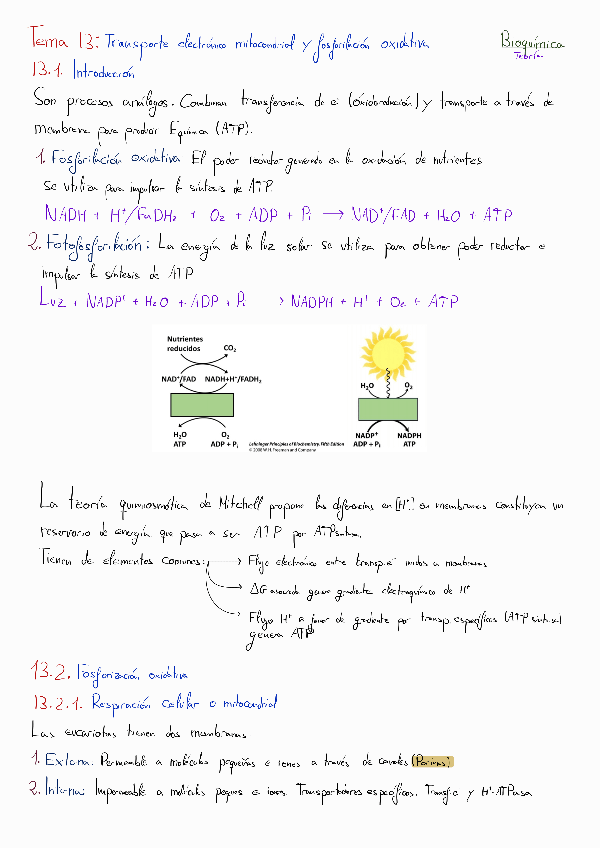 Tema 13: Transporte electrónico mitocondrial y fosforilación oxidativa
Bioquímica
Teoría
13.1. Introducción
Son procesos análogos. Combinan transferencia de e⁻ (óxidoreducción) y transporte a través de
membrana para producir Equímica (ATP).
1. Fosforilación oxidativa El poder reductor generado en la oxidación de nutrientes
se utiliza para impulsar la síntesis de ATP.
NADH + H⁺/FADH₂ + O₂ + ADP + Pi → NAD⁺/FAD + H₂O + ATP
2. Fotofosforilación: La energía de la luz solar se utiliza para obtener poder reductor e
impulsar la síntesis de ATP
Luz + NADP⁺ + H₂O + ADP + Pi → NADPH + H⁺ + O₂ + ATP
Nutrientes
reducidos
CO₂
NAD⁺/FAD
NADH+H⁺/FADH₂
H₂O
ATP
O₂
ADP + Pi
Lehninger Principles of Biochemistry, Fifth Edition
© 2008 W.H. Freeman and Company
H₂O
O₂
NADP⁺
ADP + Pi
NADPH
ATP
La teoría quimiosmótica de Mitchell propone las diferencias en [H⁺] en membranas constituyen un
reservorio de energía que pasa a ser ATP por ATPsintasa.
Tienen de elementos comunes: → Flujo electrónico entre transp. e⁻ unidos a membranas
→ ΔG asociado genera gradiente electroquímico de H⁺
→ Flujo H⁺ a favor de gradiente por transp. específicos (ATP sintasa)
genera ATP
13.2. Fosforización oxidativa
13.2.1. Respiración celular o mitocondrial
Las eucariotas tienen dos membranas
1. Externa: Permeable a moléculas pequeñas e iones a través de canales (Porinas)
2. Interna: Impermeable a moléculas peques e iones. Transportadores específicos. y H⁺-ATPasa